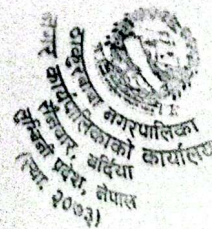 ठाकुरबाबा नगरपालिका
नगर कार्यपालिकाको कार्यालय
सैनवार, बर्दिया
लुम्बिनी प्रदेश, नेपाल
(स्था. २०७३)